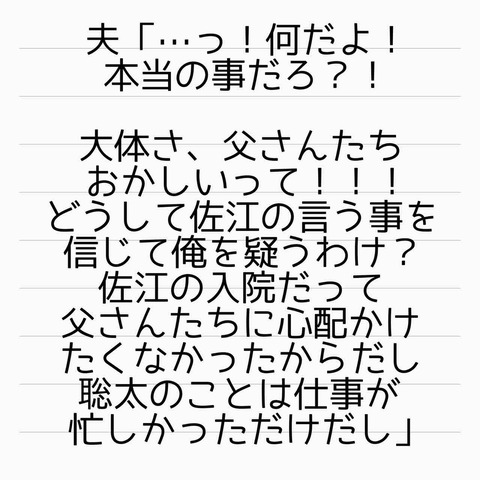 夫「…っ！何だよ！
本当の事だろ？！
大体さ、父さんたち
おかしいって！！！
どうして佐江の言う事を
信じて俺を疑うわけ？
佐江の入院だって
父さんたちに心配かけ
たくなかったからだし
聡太のことは仕事が
忙しかっただけだし」